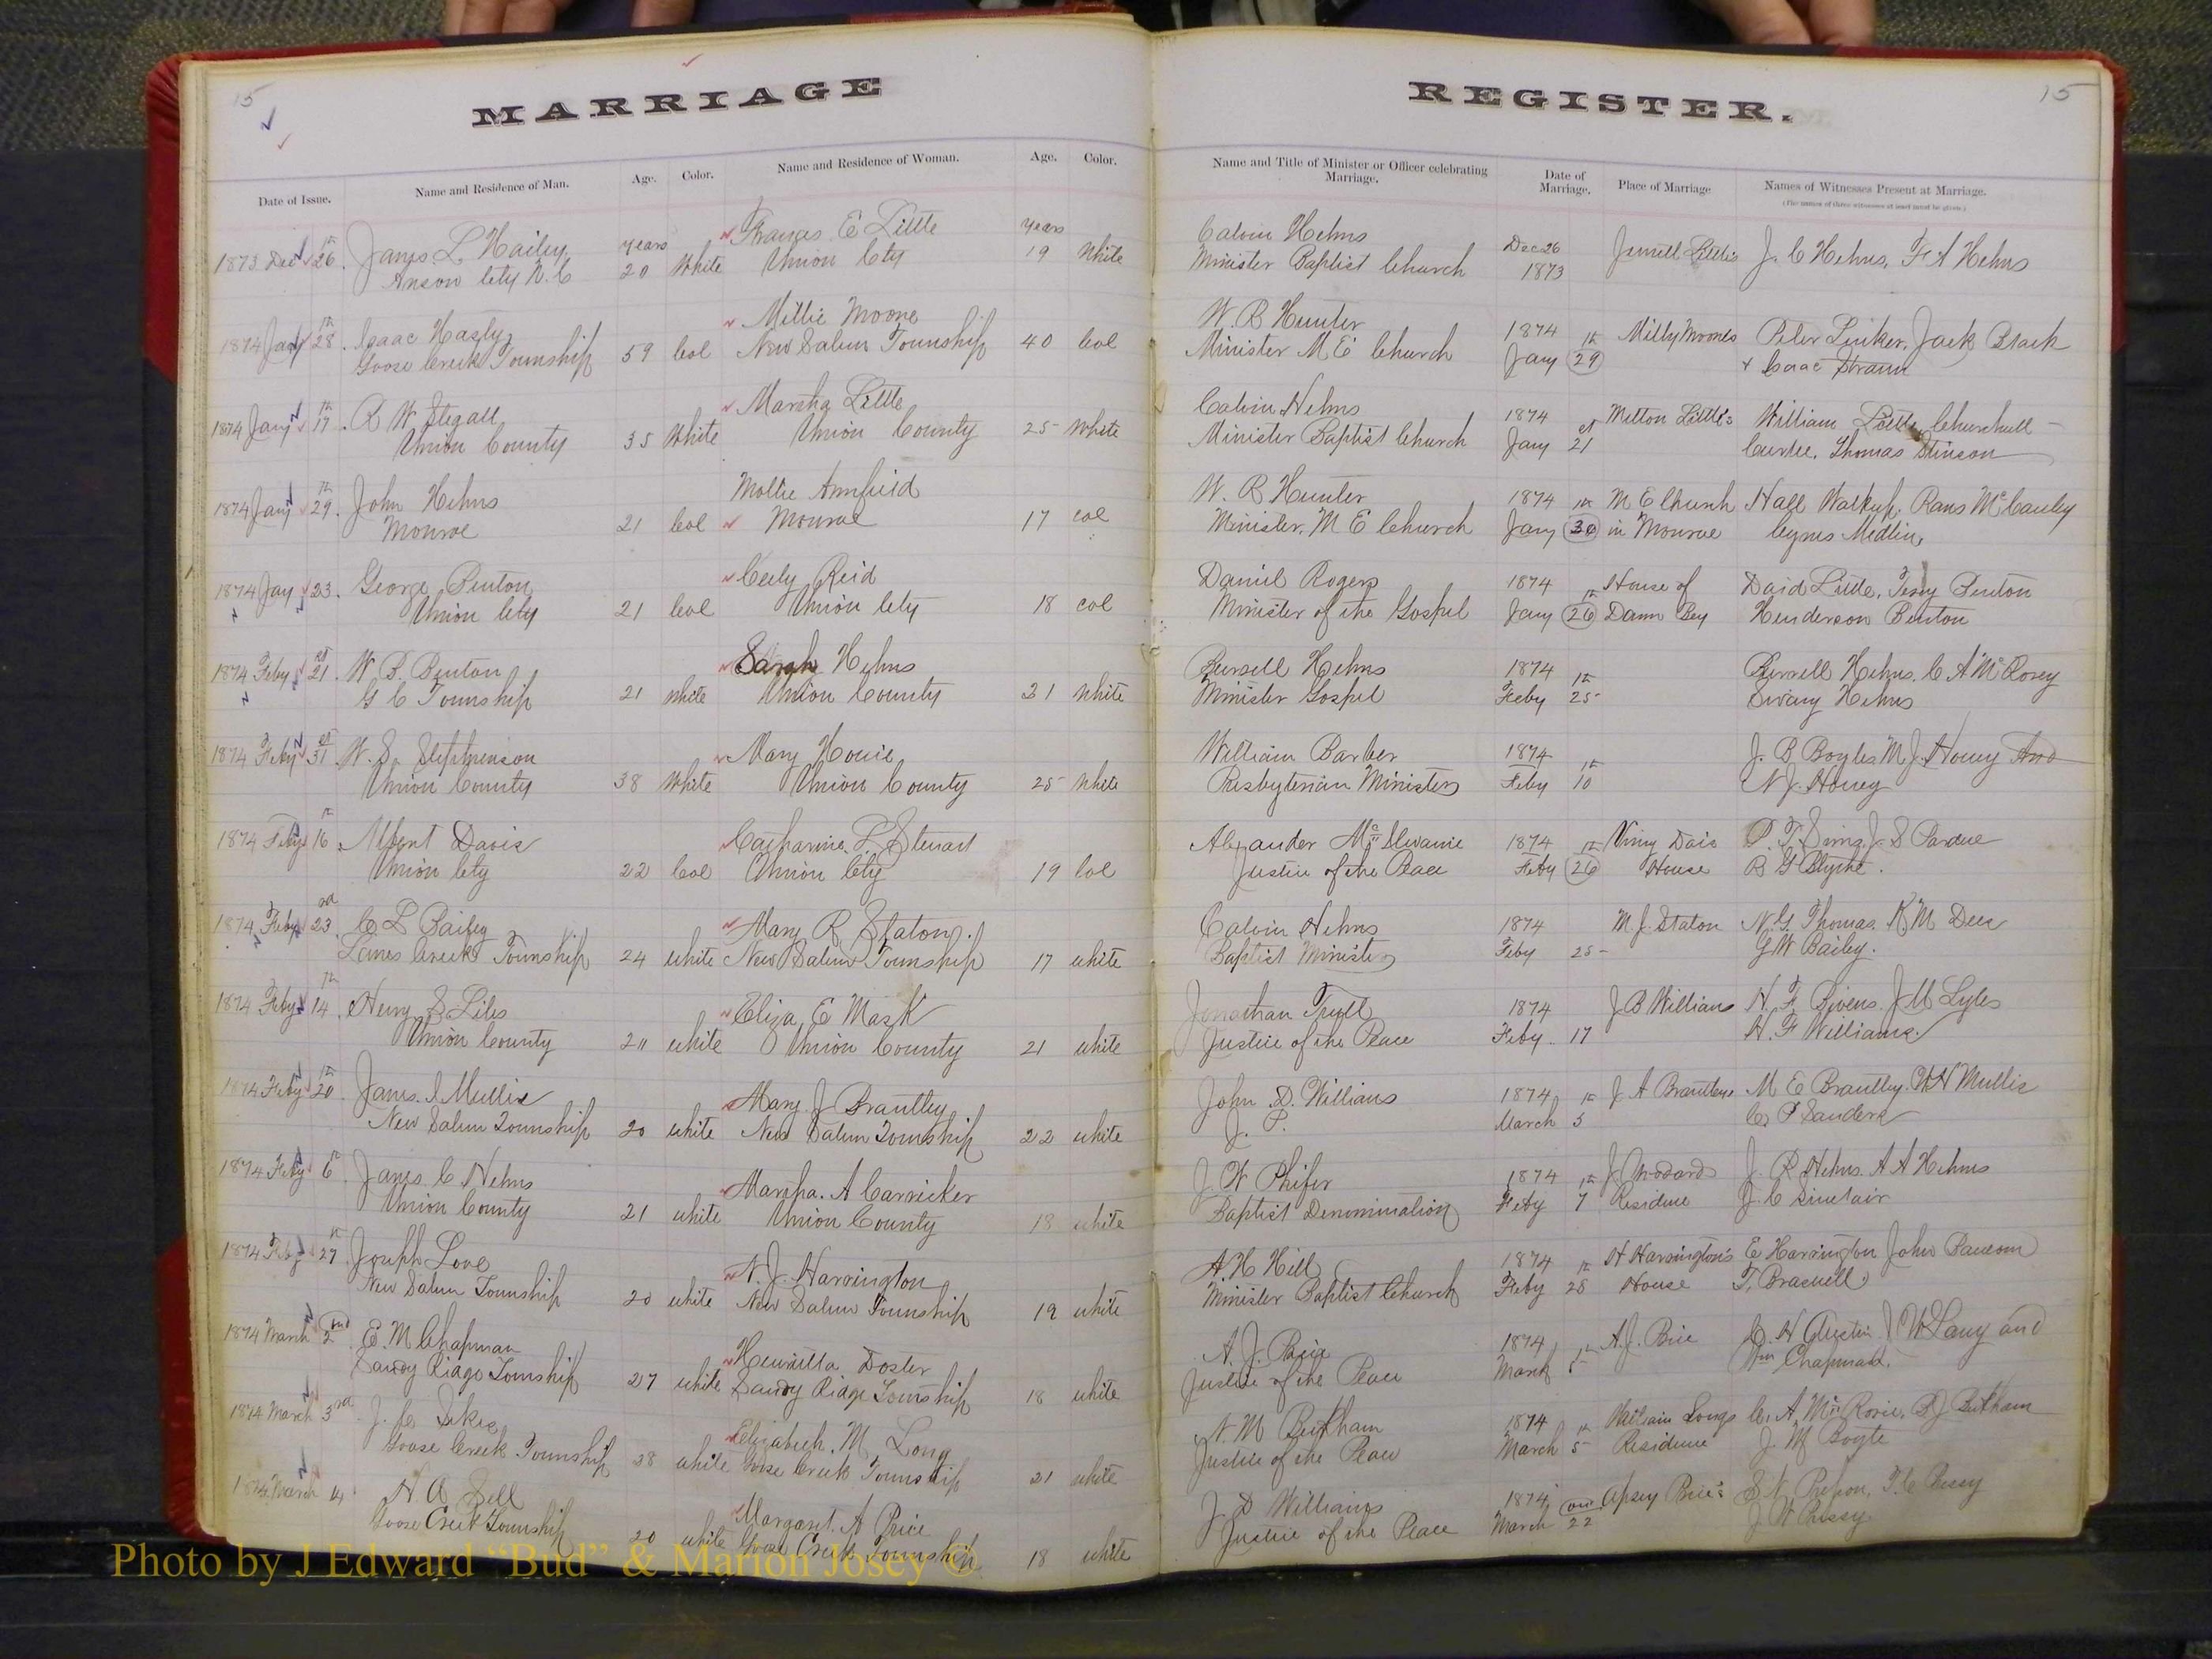 15
MARRIAGE
Date of Issue. Name and Residence of Man. Age. Color. Name and Residence of Woman. Age. Color.
1873 Dec 26th. James L. Hailey years Frances E Little years
Anson Cty N.C 20 White Union Cty 19 White
1874 Jany 28th. Isaac Millie Moore
Goose Creek Township 59 Col New Salem Township 40 Col
1874 Jany 17th. R W Stegall Martha Little
Union County 35 White Union County 25 White
1874 Jany 29th. John Helms Mollie Armfield
Monroe 21 Col Monroe 17 col
1874 Jay 23. George Benton Ceely Reid
Union Cty 21 Col Union Cty 18 col
1874 Feby 21st. W. B. Benton Sarah Helms
G C Township 21 White Union County 21 White
1874 Feby 31st. W. S. Stephenson Mary Houie
Union County 38 White Union County 25 White
1874 Feby 16th. Albert Davis Catharine L. Stewart
Union Cty 22 Col Union Cty 19 Col
1874 Feby 23rd. C L Bailey Mary R Staton.
Lanes Creek Township 24 white New Salem Township 17 white
1874 Feby 14th. Henry S Liles Eliza E Mask
Union County 211 white Union County 21 white
1874 Feby 20th. James. Mullis Mary J Brantley
New Salem Township 20 white New Salem Township 22 white
1874 Feby 6th. James. C Helms Martha. A Carricker
Union County 21 white Union County 18 white
1874 Feby 27th. Joseph Love N. J. Harrington
New Salem Township 20 white New Salem Township 19 white
1874 March 2nd E. M Chapman Henrietta Doster
Sandy Ridge Township 27 white Sandy Ridge Township 18 white
1874 March 3rd. J. C. Sikes Elizabeth. M. Long
Goose Creek Township 28 white Goose Creek Township 21 white
1874 March 14 H A Sell Margaret. A Price
Goose Creek Township 20 white Goose Creek Township 18 white
REGISTER.
15
Name and Title of Minister or Officer celebrating Marriage. Date of Marriage. Place of Marriage Names of Witnesses Present at Marriage.
(The names of three witnesses at least must be given.)
Calvin Helms Dec 26 Little's J. C Helms, F A Helms
Minister Baptist Church 1873
W. R Hunter 1874 Milly Moores Peter Linker, Jack Brach
Minister M E Church Jany 29th + Isaac
Calvin Helms 1874 Milton Little's William Little, Churchwell
Minister Baptist Church Jany 21st Curlee, Thomas Stinson
W. R Hunter 1874 M E Church Hall Walkup, Rans McCauley
Minister, M E Church Jany 30th in Monroe Cyrus Medlin,
Daniel Rogers 1874 House of David Little, Benton
Minister of the Gospel Jany 26th Henderson Benton
Burwell Helms 1874 Burwell Helms, C A McRorey
Minister Gospel Feby 25th Helms
William Barber 1874 J. B Boyles M. J. Houey And
Presbyterian Minister Feby 10th N J. Houey
Alexander McIlwanie 1874 P. T. Sims, J S Pardue
Justice of the Peace Feby 26th House B G Blythe.
Calvin Helms 1874 M J Staton N. G. Thomas, K M Dees
Baptist Minister Feby 25- G W Bailey.
Jonathan Trull 1874 J B Williams H. F Bivens J M Lyles
Justice of the Peace Feby. 17 H. F Williams
John D. Williams 1874 J A Brantleys M E Brantley, W H Mullis
J. P. March 5th C P Sanders
J. W Phifer 1874 J Woodards J. R Helms, A A Helms
Baptist Denomination Feby 7th Residence J. C Sinclair
A. H Hill 1874 H Harrington's E Harrington John Ransom
Minister Baptist Church Feby 28th House T. Braswell
A. J. Price 1874 A. J. Price H Austin J W Laney and
Justice of the Peace March 5th Wm Chapman.
N. M Bentham 1874 William Longs C. A McRorie, Bentham
Justice of the Peace March 5th Residence J. M Boyte
J D Williams 1874 Apsey Price's S. N. T. C Pressy
Justice of the Peace March 22nd J W Pressy
Photo by J Edward “Bud” & Marion Josey ©